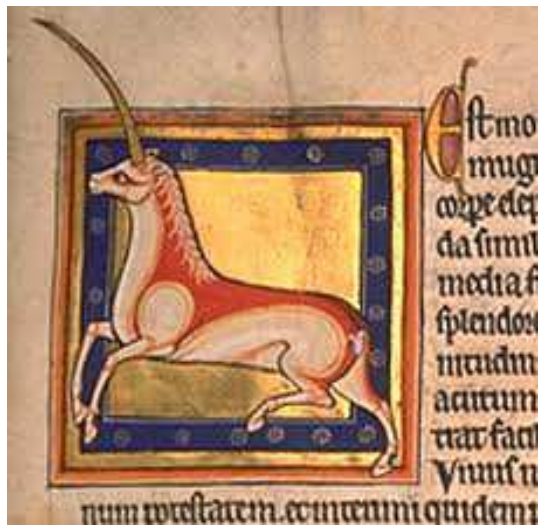 Est mo
mugi
corpe elep
da simil
media f
splendore
nitudin
acutum
tiat facil
Viuus n
num potestatem. et interimi quidem